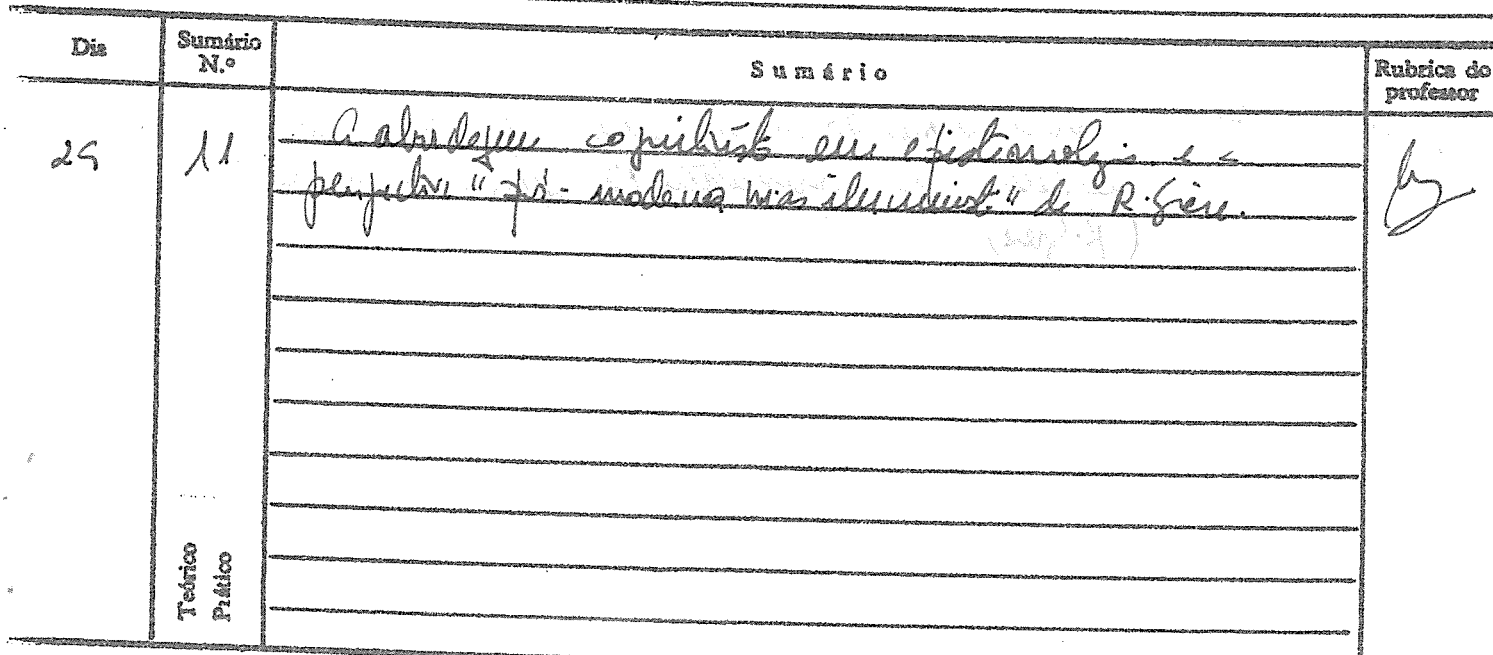 Dia
Sumário N.º
Sumário
Rubrica do professor
11
A abordagem cognitivista em epistemologia e a
perspectiva "pós-moderna mas iluminista" de R. Giere.
Teórico
Prático